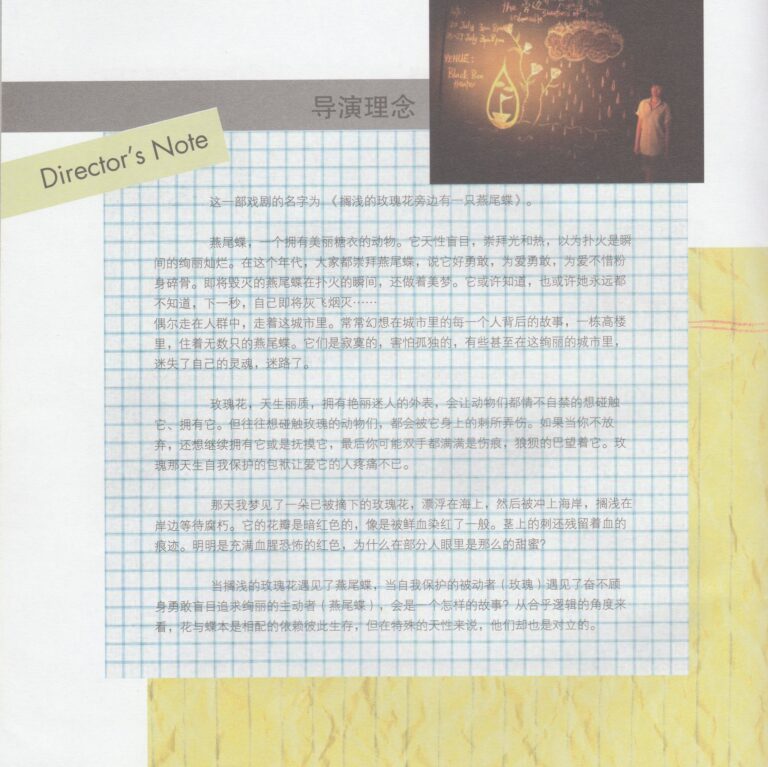 July 3pm 8pm
July 3pm 8pm
VENUE:
Black Box
导演理念
Director's Note
这一部戏剧的名字为 《搁浅的玫瑰花旁边有一只燕尾蝶》。
燕尾蝶，一个拥有美丽糖衣的动物。它天性盲目，崇拜光和热，以为扑火是瞬
间的绚丽灿烂。在这个年代，大家都崇拜燕尾蝶，说它好勇敢，为爱勇敢，为爱不惜粉
身碎骨。即将毁灭的燕尾蝶在扑火的瞬间，还做着美梦。它或许知道，也或许她永远都
不知道，下一秒，自己即将灰飞烟灭……
偶尔走在人群中，走着这城市里。常常幻想在城市里的每一个人背后的故事，一栋高楼
里，住着无数只的燕尾蝶。它们是寂寞的，害怕孤独的，有些甚至在这绚丽的城市里，
迷失了自己的灵魂，迷路了。
玫瑰花，天生丽质，拥有艳丽迷人的外表，会让动物们都情不自禁的想碰触
它、拥有它。但往往想碰触玫瑰的动物们，都会被它身上的刺所弄伤。如果当你不放
弃，还想继续拥有它或是抚摸它，最后你可能双手都满满是伤痕，狼狈的巴望着它。玫
瑰那天生自我保护的包袱让爱它的人疼痛不已。
那天我梦见了一朵已被摘下的玫瑰花，漂浮在海上，然后被冲上海岸，搁浅在
岸边等待腐朽。它的花瓣是暗红色的，像是被鲜血染红了一般。茎上的刺还残留着血的
痕迹。明明是充满血腥恐怖的红色，为什么在部分人眼里是那么的甜蜜？
当搁浅的玫瑰花遇见了燕尾蝶，当自我保护的被动者（玫瑰）遇见了奋不顾
身勇敢盲目追求绚丽的主动者（燕尾蝶），会是一个怎样的故事？从合乎逻辑的角度来
看，花与蝶本是相配的依赖彼此生存，但在特殊的天性来说，他们却也是对立的。